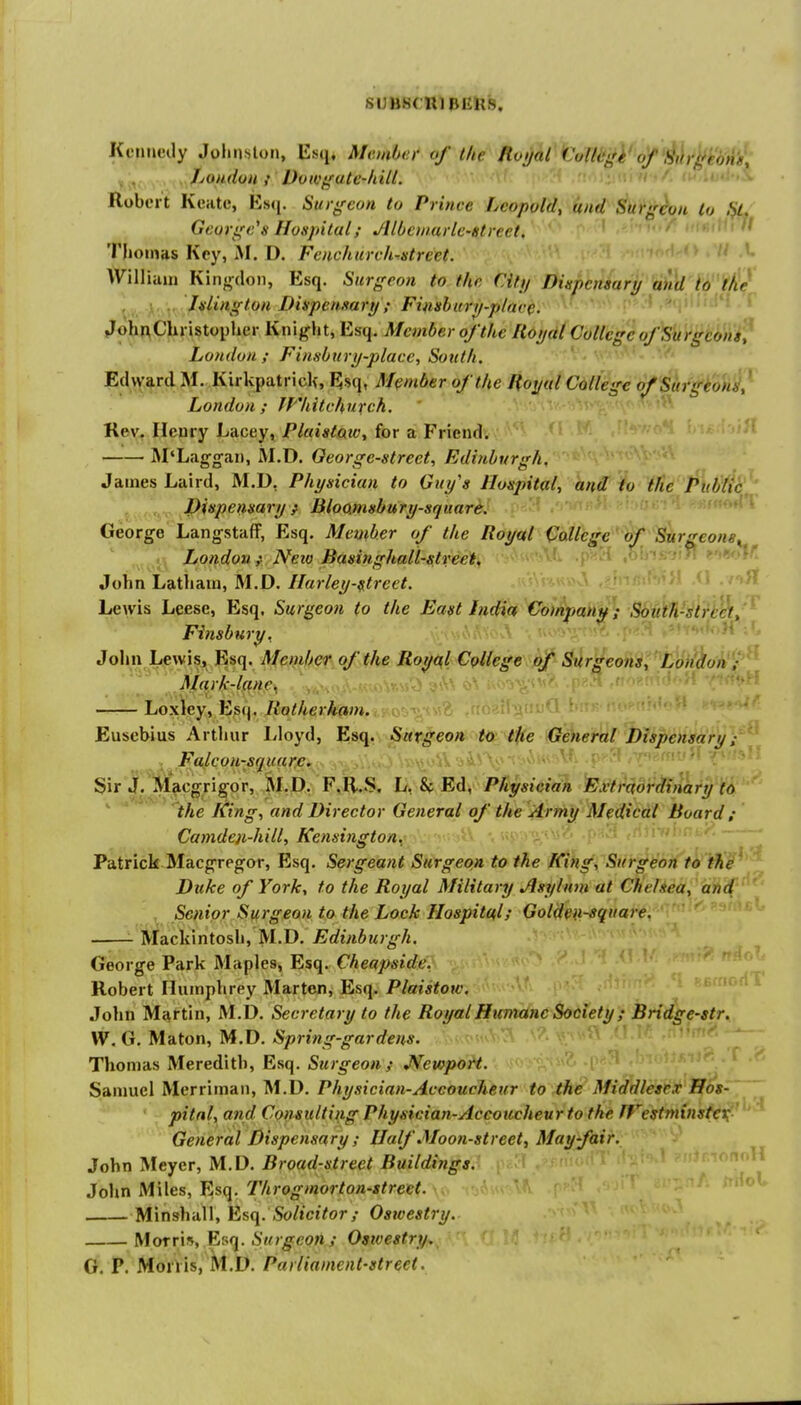 SUBSCRIBERS.
Kennedy Johnston, Esq. Member of the Royal College of Surgeons,
London; Dowgate-hill.
Robert Keate, Esq. Surgeon to Prince Leopold, and Surgeon to St.
George's Hospital; Albemarle-street.
Thomas Key, M. D. Fenchurch-street.
William Kingdon, Esq. Surgeon to the City Dispensary and to the
Islington Dispensary; Finsbury-place.
John Christopher Knight, Esq. Member of the Royal College of Surgeons,
London; Finsbury-place, South.
Edward M. Kirkpatrick, Esq. Member of the Royal College of Surgeons,
London; Whitchurch.
Rev. Henry Lacey, Plaistow, for a Friend.
—— M'Laggan, M.D. George-street, Edinburgh.
James Laird, M.D. Physician to Guy's Hospital, and to the Public
Dispensary; Bloomsbury-square.
George Langstaff, Esq. Member of the Royal College of Surgeons,
London; New Basinghall-street.
John Latham, M.D. Harley-street.
Lewis Leese, Esq. Surgeon to the East India Company; South-street,
Finsbury.
John Lewis, Esq. Member of the Royal College of Surgeons, London;
Mark-lane.
—— Loxley, Esq. Rotherham.
Eusebius Arthur Lloyd, Esq. Surgeon to the General Dispensary;
Falcon-square.
Sir J. Macgrigor, M.D. F.R.S. L. & Ed. Physician Extraordinary to
the King, and Director General of the Army Medical Board;
Camden-hill, Kensington.
Patrick Macgregor, Esq. Sergeant Surgeon to the King, Surgeon to the
Duke of York, to the Royal Military Asylum at Chelsea, and
Senior Surgeon to the Lock Hospital; Golden-square.
—— Mackintosh, M.D. Edinburgh.
George Park Maples, Esq. Cheapside.
Robert Humphrey Marten, Esq. Plaistow.
John Martin, M.D. Secretary to the Royal Humane Society; Bridge-str.
W. G. Maton, M.D. Spring-gardens.
Thomas Meredith, Esq. Surgeon; Newport.
Samuel Merriman, M.D. Physician-Accoucheur to the Middlesex Hos-
pital, and Consulting Physician-Accoucheur to the Westminster
General Dispensary; Half Moon-street, May-fair.
John Meyer, M.D. Broad-street Buildings.
John Miles, Esq. Throgmorton-street.
—— Minshall, Esq. Solicitor; Oswestry.
—— Morris, Esq. Surgeon; Oswestry.
G. P. Morris, M.D. Parliament-street.